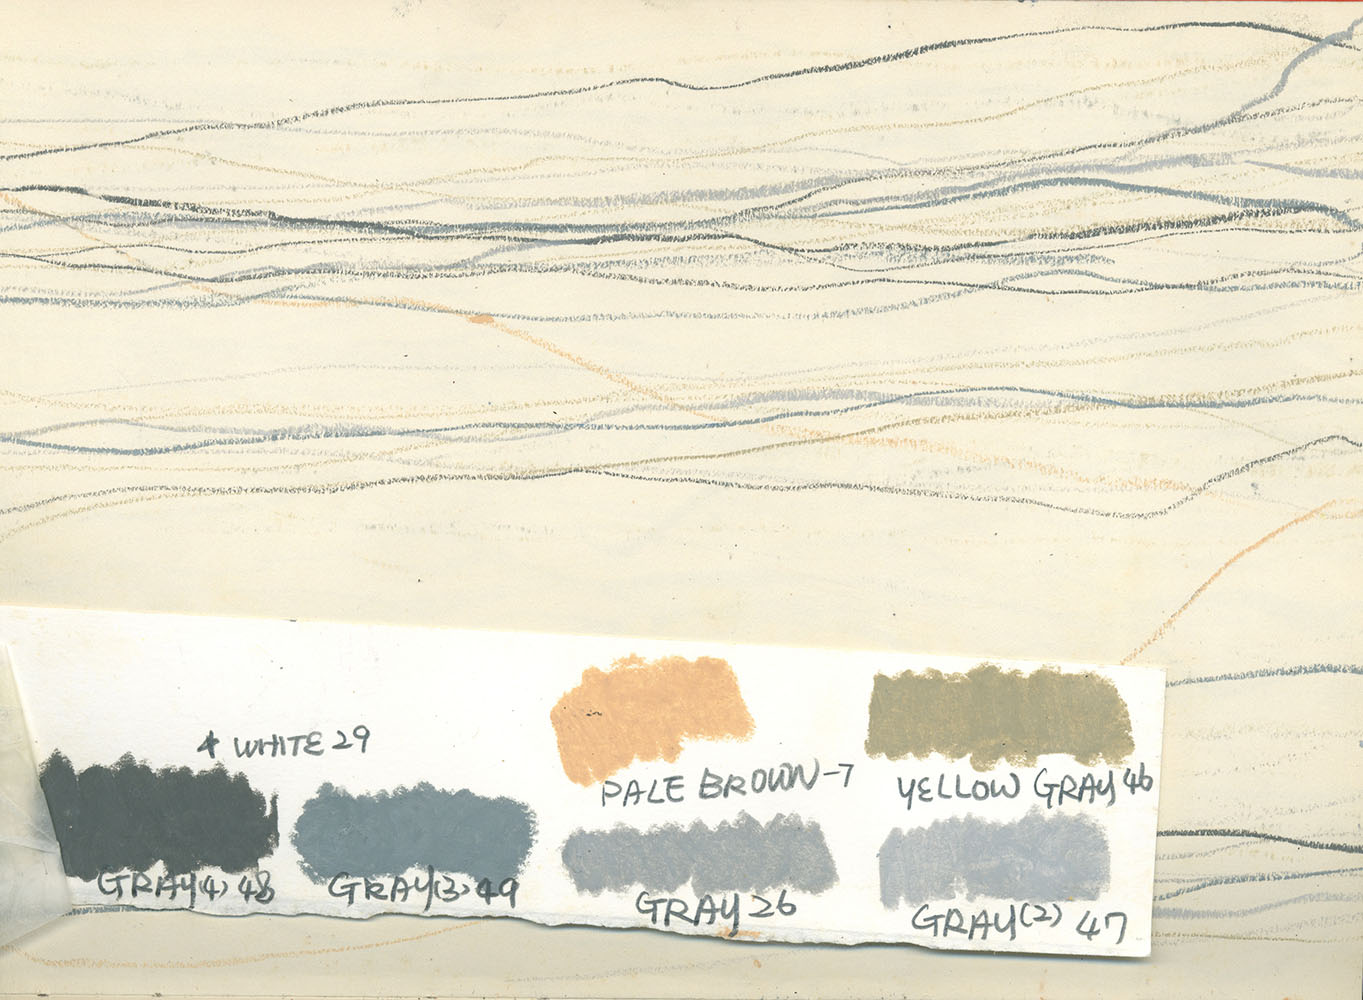 + WHITE 29
PALE BROWN-7
YELLOW GRAY 46
GRAY(4) 48
GRAY(3) 49
GRAY 26
GRAY(2) 47